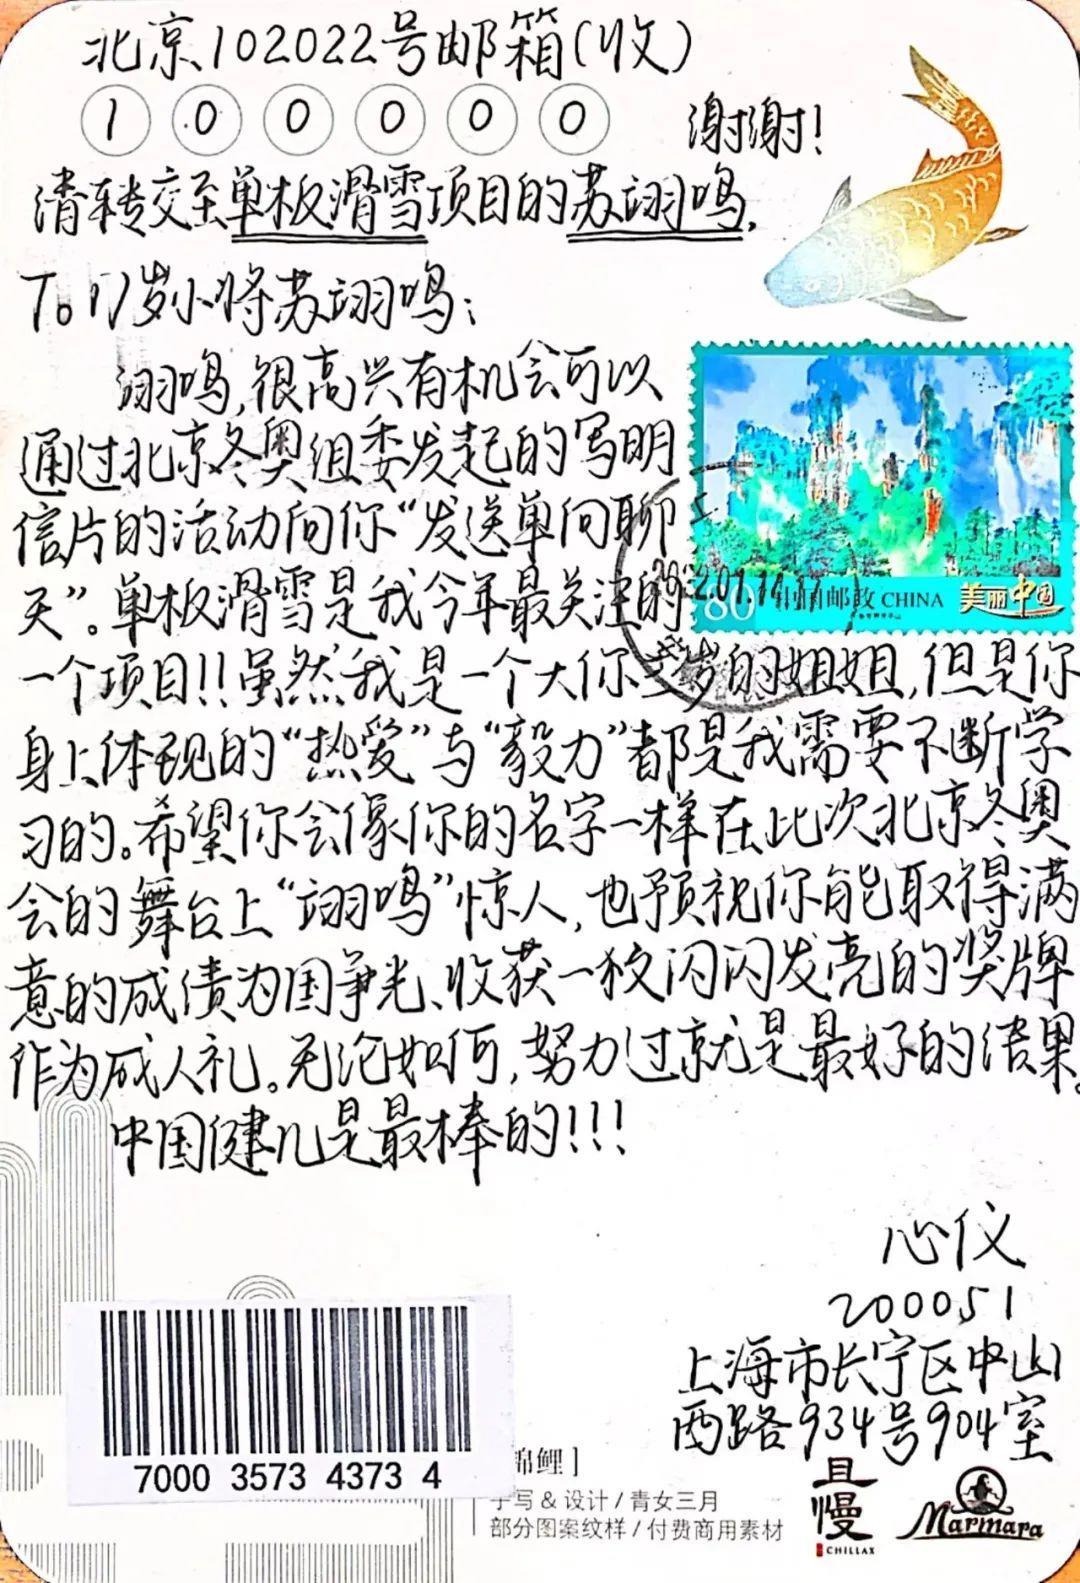 北京102022号邮箱(收)
1 0 0 0 0 0
谢谢!
请转交至单板滑雪项目的苏翊鸣.
To 17岁小将苏翊鸣:
翊鸣,很高兴有机会可以
通过北京冬奥组委发起的写明
信片的活动向你“发送单向聊
天”。单板滑雪是我今年最关注的
80 中国邮政 CHINA 美丽中国
一个项目!!虽然我是一个大你 岁的姐姐,但是你
身上体现的“热爱”与“毅力”都是我需要不断学
习的。希望你会像你的名字一样在此次北京冬奥
会的舞台上“翊鸣”惊人,也预祝你能取得满
意的成绩为国争光、收获一枚闪闪发亮的奖牌
作为成人礼。无论如何,努力过就是最好的结果。
中国健儿是最棒的!!!
心仪
200051
上海市长宁区中山
西路934号904室
7000 3573 4373 4
锦鲤]
手写 & 设计 / 青女三月
部分图案纹样 / 付费商用素材
且慢
CHILLAX
Marmara